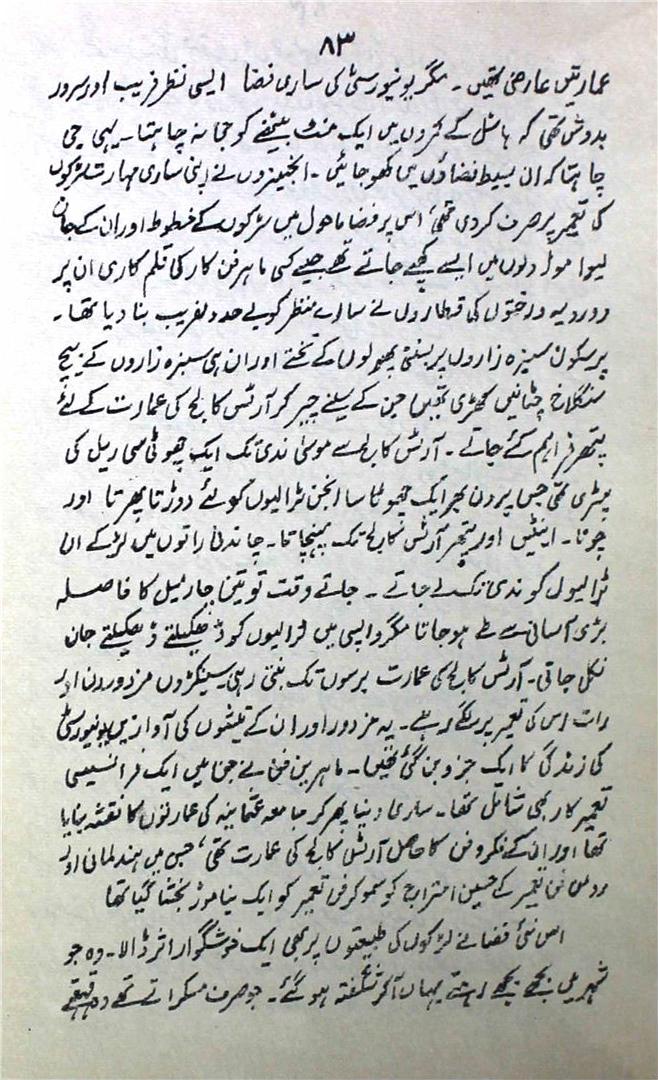 ۸۳
عمارتیں عارضی تھیں ۔ مگر یونیورسٹی کی ساری فضا ایسی نظر فریب اور سرور
بدوش تھی کہ ہاسٹل کے کمروں میں ایک منٹ بیٹھنے کو جی نہ چاہتا ۔ یہی جی
چاہتا کہ ان بسیط فضاؤں میں کھو جائیں ۔ انجینیروں نے اپنی ساری مہارت سڑکوں
کی تعمیر پر صرف کر دی تھی ، اس پر فضا ماحول میں سڑکوں کے خطوط اور ان کے جان
لیوا موڑ دلوں میں ایسے کھبے جاتے تھے جیسے کسی ماہر فن کار کی قلم کاری ان پر
دو رویہ درختوں کی قطاروں نے سارے منظر کو بے حد دلفریب بنا دیا تھا ۔
پر سکون سبزہ زاروں پر بسنتی پھولوں کے تختے اور ان ہی سبزہ زاروں کے بیچ
سنگلاخ چٹانیں کھڑی تھیں جن کے سینے چیر کر آرٹس کالج کی عمارت کے لئے
پتھر فراہم کئے جاتے ۔ آرٹس کالج سے موسیٰ ندی تک ایک چھوٹی سی ریل کی
پٹری تھی جس پر دن بھر ایک چھوٹا سا انجن ٹرالیوں کو لئے دوڑتا پھرتا اور
چونا ۔ اینٹیں اور پتھر آرٹس کالج تک پہنچاتا ۔ چاندنی راتوں میں لڑکے ان
ٹرالیوں کو ندی تک لے جاتے ۔ جاتے وقت تو تین چار میل کا فاصلہ
بڑی آسانی سے طے ہو جاتا مگر واپسی میں ٹرالیوں کو ڈھکیلتے ڈھکیلتے جان
نکل جاتی ۔ آرٹس کالج کی عمارت برسوں تک بنتی رہی سینکڑوں مزدور دن اور
رات اس کی تعمیر پر لگے رہے ۔ یہ مزدور اور ان کے تیشوں کی آوازیں یونیورسٹی
کی زندگی کا ایک جزو بن گئی تھیں ۔ ماہرین فن نے جن میں ایک فرانسیسی
تعمیر کار بھی شامل تھا ۔ ساری دنیا پھر کر جامعہ عثمانیہ کی عمارتوں کا نقشہ بنایا
تھا اور ان کے فکر و فن کا حاصل آرٹس کالج کی عمارت تھی ، جس میں ہندلمانی اور
رومن فن تعمیر کے حسین امتزاج کو سمو کر فن تعمیر کو ایک نیا موڑ بخشا گیا تھا
اس نئی فضا نے لڑکوں کی طبیعتوں پر بھی ایک خوشگوار اثر ڈالا ۔ وہ جو
شہر میں بجھے بجھے رہتے یہاں آکر شگفتہ ہو گئے ۔ جو صرف مسکراتے تھے وہ قہقہے